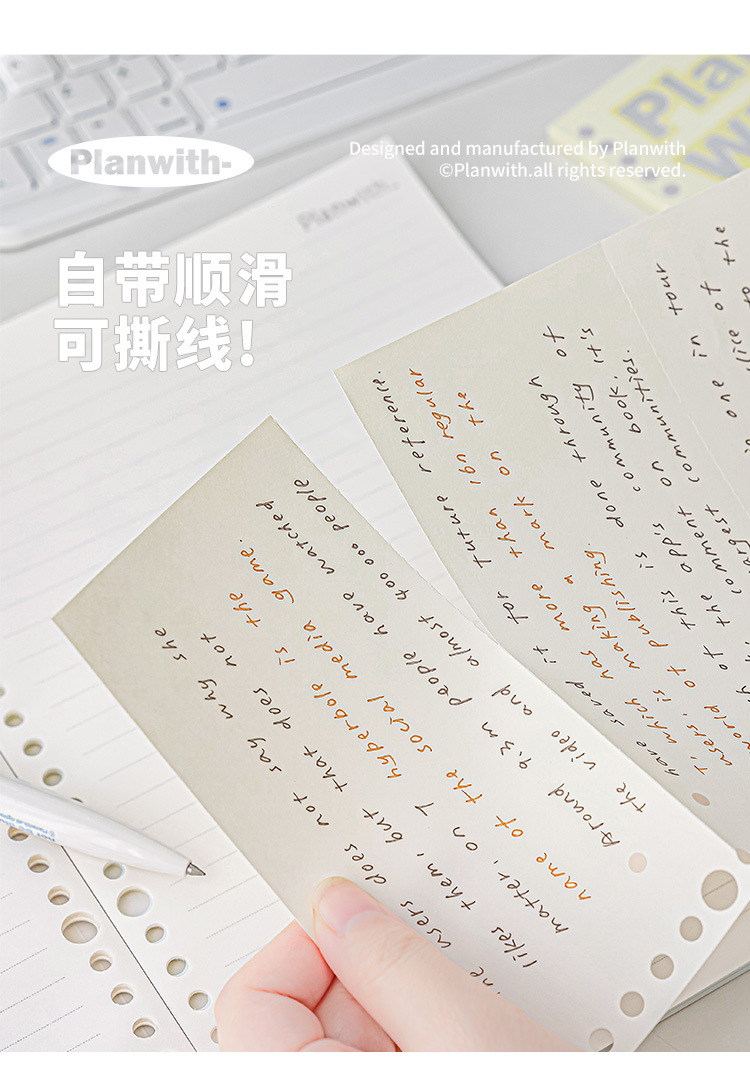 Planwith-
Designed and manufactured by Planwith
©Planwith.all rights reserved.
自带顺滑
可撕线!
Planwith
Pla
W
Around 9.3m people have watched
the video and almost 400 000 people
name of the social media game.
matter, on T hyperbole is the
likes them, but that does not
users does not say why she
have saved it for future reference.
T, which has more than 1bn regular
users, is making a mark on the
world of publishing.
of this is done through
the app's community of
comment on book, it's
largest communities.
one in four
slice of the
to the